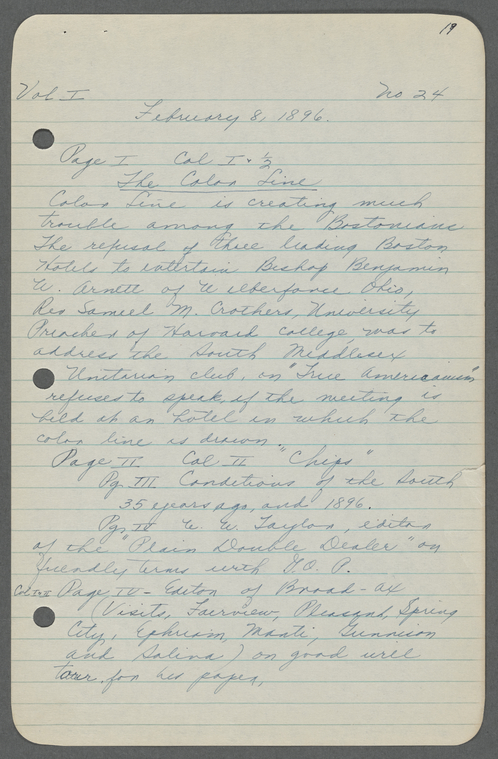 19
Vol I No 24
February 8, 1896.
Page I Col I + ½
The Color Line
Color Line is creating much
trouble among the Bostonians
The refusal of three leading Boston
Hotels to entertain Bishop Benjamin
W. Arnett of Wilberforce Ohio,
Rev Samuel M. Crothers, University
Preacher of Harvard college was to
address the South Middlesex
Unitarian club, on "True Americanism"
refuses to speak, if the meeting is
held at an hotel in which the
color line is drawn.
Page II Col II "Chips"
Pg. III Conditions of the South
35 years ago, and 1896.
Pgs IV W. W. Taylor, editor
of the "Plain Double Dealer" on
friendly terms with G.O.P.
Page IV - Editor of Broad-ax
(Visits, Fairview, Pleasant, Spring
City, Ephriam, Manti, Gunnison
and Salina) on good will
tour for his paper,